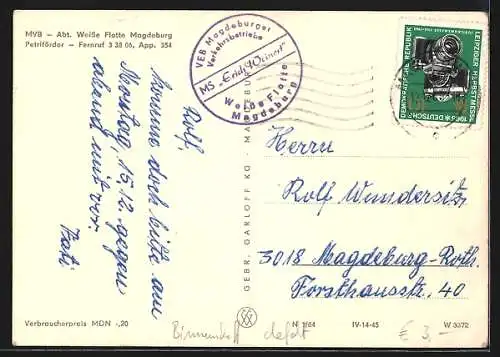 MVB – Abt. Weiße Flotte Magdeburg
Petriförder – Fernruf 3 38 06, App. 354
VEB Magdeburger
Verkehrsbetriebe
MS „Erich Weinert"
Weiße Flotte
Magdeburg
LEIPZIGER HERBSTMESSE
DEUTSCHE DEMOKRATISCHE REPUBLIK
Rolf,
komme doch bitte am
Montag, 15.12 gegen
abend mit vor.
Kati
Herrn
Rolf Wundersitz
3018 Magdeburg-Roth.
Forsthausstr. 40
GEBR. GARLOFF KG · MAGDEBURG
Verbraucherpreis MDN -,20
Binnenschiff defekt
N 1/64
IV-14-45
€ 3,-
W 5072